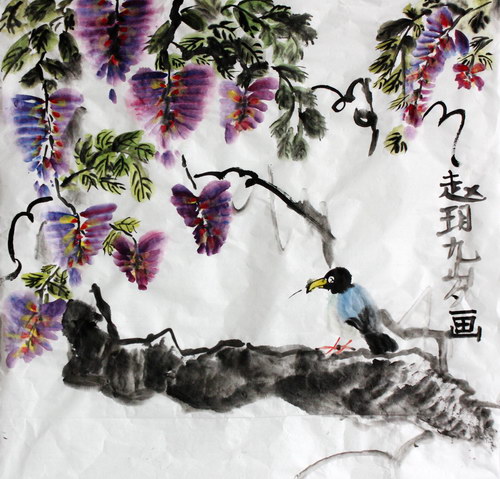 赵玥九岁画